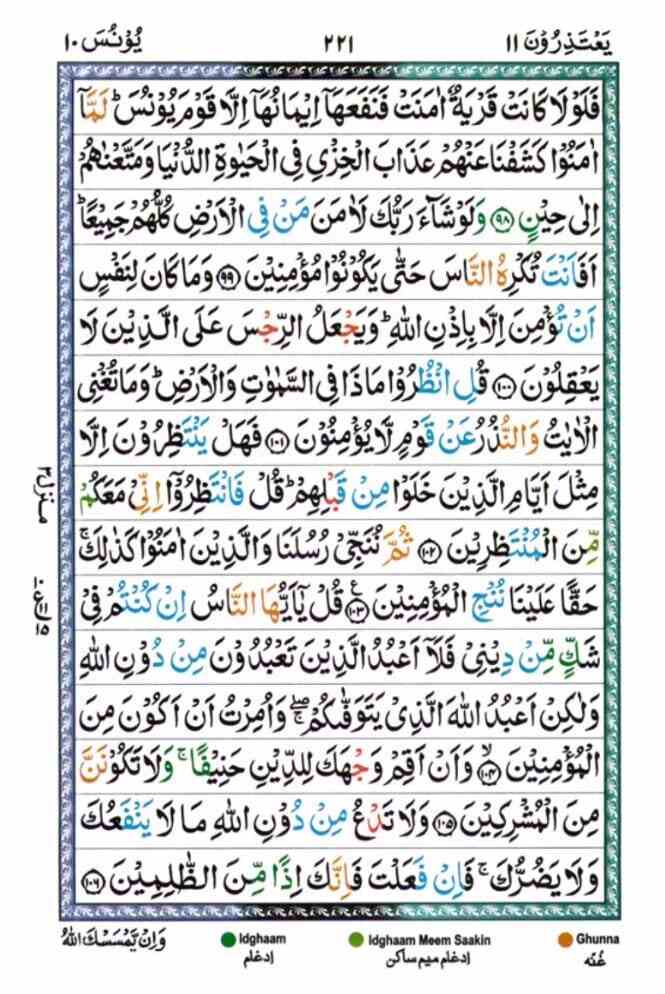 یَعْتَذِرُوْنَ ۱۱
۲۲۱
یُوْنُس ۱۰
فَلَوْ لَا كَانَتْ قَرْیَةٌ اٰمَنَتْ فَنَفَعَهَاۤ اِیْمَانُهَاۤ اِلَّا قَوْمَ یُوْنُسَ ؕ لَمَّاۤ
اٰمَنُوْا كَشَفْنَا عَنْهُمْ عَذَابَ الْخِزْیِ فِی الْحَیٰوةِ الدُّنْیَا وَ مَتَّعْنٰهُمْ
اِلٰی حِیْنٍ ۹۸ وَ لَوْ شَآءَ رَبُّكَ لَاٰمَنَ مَنْ فِی الْاَرْضِ كُلُّهُمْ جَمِیْعًا ؕ
اَفَاَنْتَ تُكْرِهُ النَّاسَ حَتّٰی یَكُوْنُوْا مُؤْمِنِیْنَ ۹۹ وَ مَا كَانَ لِنَفْسٍ
اَنْ تُؤْمِنَ اِلَّا بِاِذْنِ اللّٰهِ ؕ وَ یَجْعَلُ الرِّجْسَ عَلَی الَّذِیْنَ لَا
یَعْقِلُوْنَ ۱۰۰ قُلِ انْظُرُوْا مَاذَا فِی السَّمٰوٰتِ وَ الْاَرْضِ ؕ وَ مَا تُغْنِی
الْاٰیٰتُ وَ النُّذُرُ عَنْ قَوْمٍ لَّا یُؤْمِنُوْنَ ۱۰۱ فَهَلْ یَنْتَظِرُوْنَ اِلَّا
مِثْلَ اَیَّامِ الَّذِیْنَ خَلَوْا مِنْ قَبْلِهِمْ ؕ قُلْ فَانْتَظِرُوْۤا اِنِّیْ مَعَكُمْ
مِّنَ الْمُنْتَظِرِیْنَ ۱۰۲ ثُمَّ نُنَجِّیْ رُسُلَنَا وَ الَّذِیْنَ اٰمَنُوْا كَذٰلِكَ ۚ
حَقًّا عَلَیْنَا نُنْجِ الْمُؤْمِنِیْنَ ۱۰۳ قُلْ یٰۤاَیُّهَا النَّاسُ اِنْ كُنْتُمْ فِیْ
شَكٍّ مِّنْ دِیْنِیْ فَلَاۤ اَعْبُدُ الَّذِیْنَ تَعْبُدُوْنَ مِنْ دُوْنِ اللّٰهِ
وَ لٰكِنْ اَعْبُدُ اللّٰهَ الَّذِیْ یَتَوَفّٰىكُمْ ۖۚ وَ اُمِرْتُ اَنْ اَكُوْنَ مِنَ
الْمُؤْمِنِیْنَ ۱۰۴ۙ وَ اَنْ اَقِمْ وَجْهَكَ لِلدِّیْنِ حَنِیْفًا ۚ وَ لَا تَكُوْنَنَّ
مِنَ الْمُشْرِكِیْنَ ۱۰۵ وَ لَا تَدْعُ مِنْ دُوْنِ اللّٰهِ مَا لَا یَنْفَعُكَ
وَ لَا یَضُرُّكَ ۚ فَاِنْ فَعَلْتَ فَاِنَّكَ اِذًا مِّنَ الظّٰلِمِیْنَ ۱۰۶
منزل ۳
وَ اِنْ یَّمْسَسْكَ اللّٰهُ
Idghaam
ادغام
Idghaam Meem Saakin
ادغام میم ساکن
Ghunna
غنّه